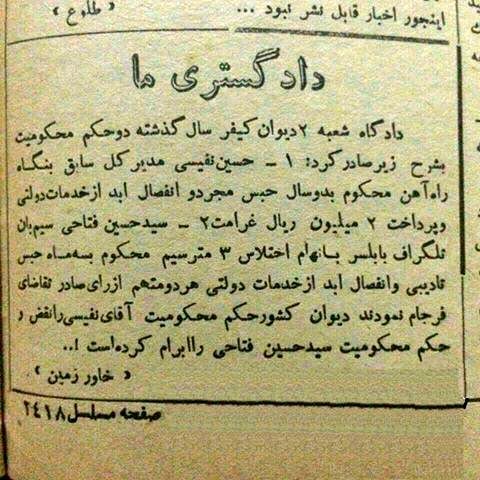 اینجور اخبار قابل نشر نبود ... « طلوع »
دادگستری ما
دادگاه شعبه ۲ دیوان کیفر سال گذشته دو حکم محکومیت
بشرح زیر صادر کرد: ۱ - حسین نفیسی مدیر کل سابق بنگاه
راه آهن محکوم بدو سال حبس مجرد و انفصال ابد از خدمات دولتی
و پرداخت ۲ میلیون ریال غرامت ۲ - سید حسین فتاحی سیم بان
تلگراف بابلسر باتهام اختلاس ۳ متر سیم محکوم بسه ماه حبس
تادیبی و انفصال ابد از خدمات دولتی هر دو متهم از رای صادر تقاضای
فرجام نمودند دیوان کشور حکم محکومیت آقای نفیسی را نقض و
حکم محکومیت سید حسین فتاحی را ابرام کرده است !..
« خاور زمین »
صفحه مسلسل ۲۴۱۸